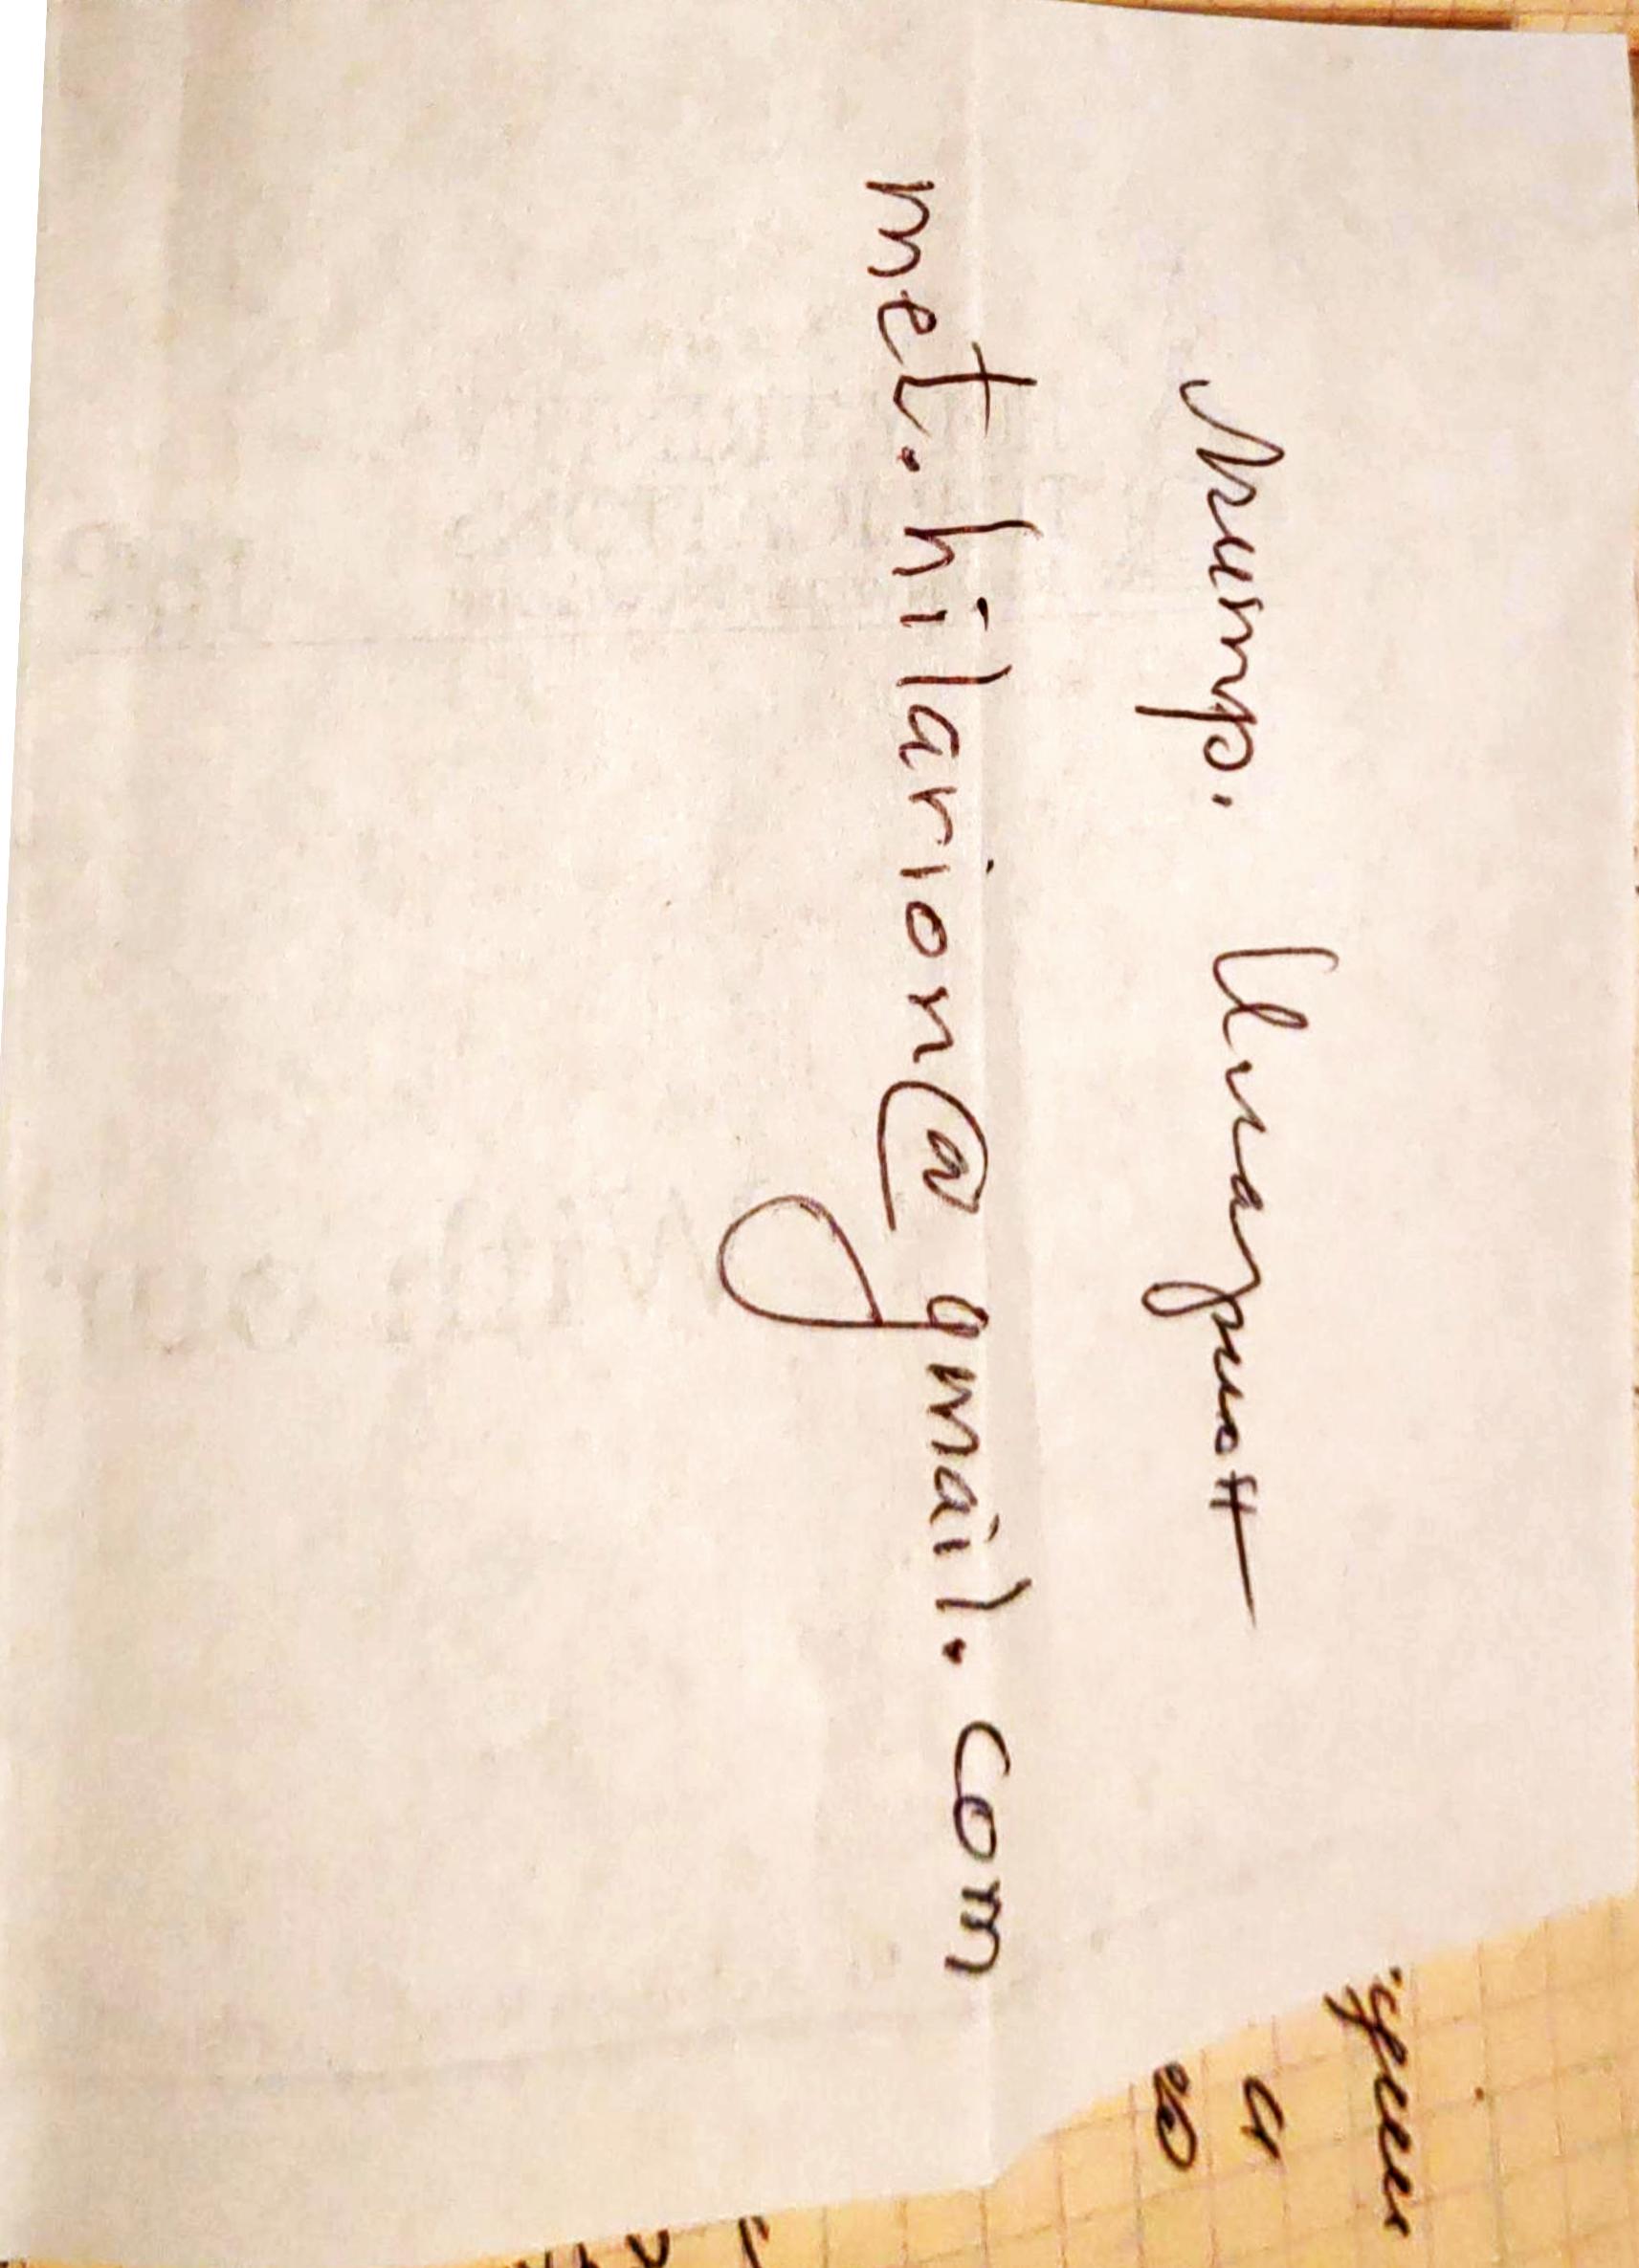 митр. Иларион
met.hilarion@gmail.com
и